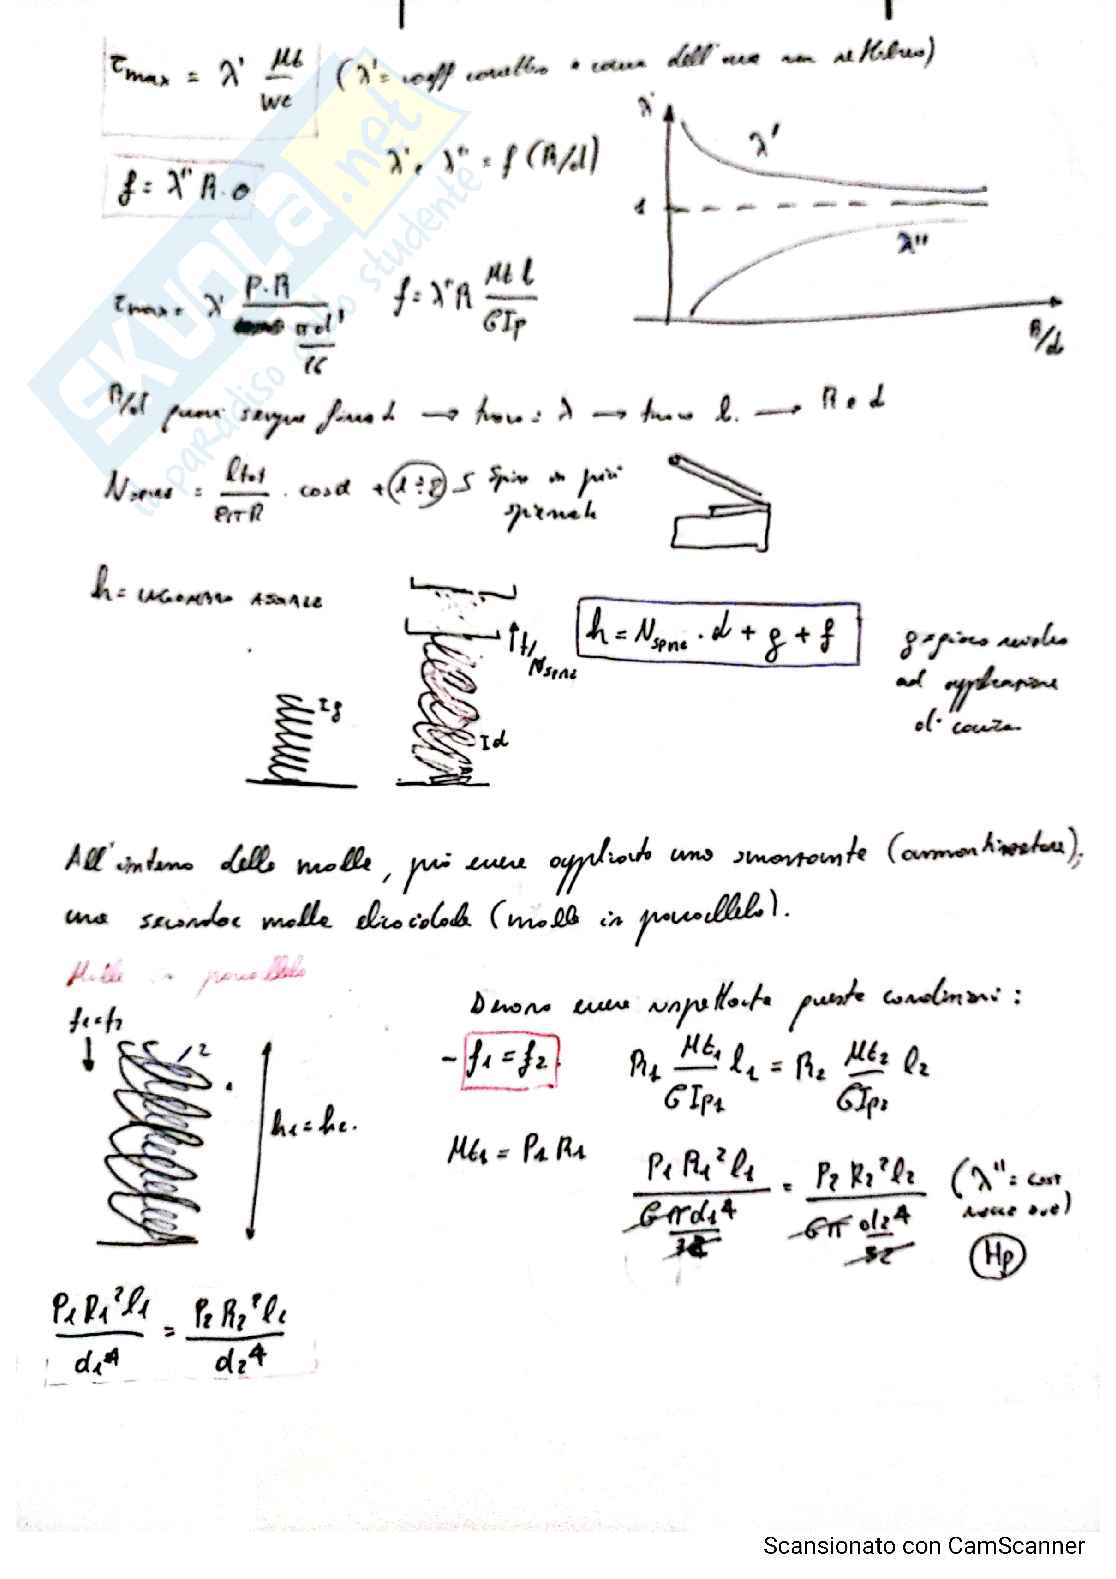 τmax = λ' Mt/Wt (λ' = coeff correttivo a causa dell'asse non rettilineo)
f = λ'' R · θ
λ', λ'' = f (R/d)
λ
λ'
1
λ''
R/d
τmax = λ' P·R / πd³/16
f = λ'' R Mt l / G Ip
R/d → trovo: λ → trovo l. → R e d
Nspire = ltot / 2πR · cosα + (1÷2) Spire in più
h = INGOMBRO ASSIALE
f/Nspire
h = Nspire · d + g + f
g = gioco residuo
ad applicazione
di carico.
I g
I d
All'interno delle molle, può essere applicato uno smorzante (ammortizzatore),
una seconda molla elicoidale (molle in parallelo).
Molle in parallelo
f1 = f2
2
h1 = h2.
Devono essere rispettate queste condizioni:
- f1 = f2
R1 Mt1/GIp1 l1 = R2 Mt2/GIp2 l2
Mt1 = P1 R1
P1 R1² l1 / Gπd1⁴/32 = P2 R2² l2 / Gπd2⁴/32 (λ'' = cost
Hp
P1 R1² l1 / d1⁴ = P2 R2² l2 / d2⁴
SKUOLA.net
il paradiso dello studente
Scansionato con CamScanner